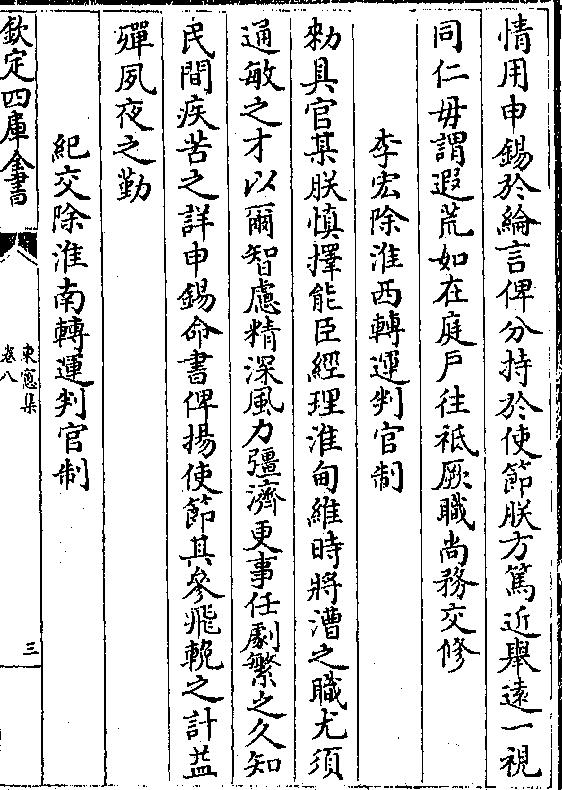 情用申錫於綸言俾分持於使節朕方篤近舉遠一視
同仁毋謂遐荒如在庭戶往祗厥職尚務交修
李宏除淮西轉運判官制
勑具官某朕慎擇能臣經理淮甸維時將漕之職尤須
通敏之才以爾智慮精深風力彊濟更事任劇繁之久知
民間疾苦之詳申錫命書俾揚使節其參飛輓之計益
殫夙夜之勤
紀交除淮南轉運判官制
欽定四庫全書
東窻集
卷八
三